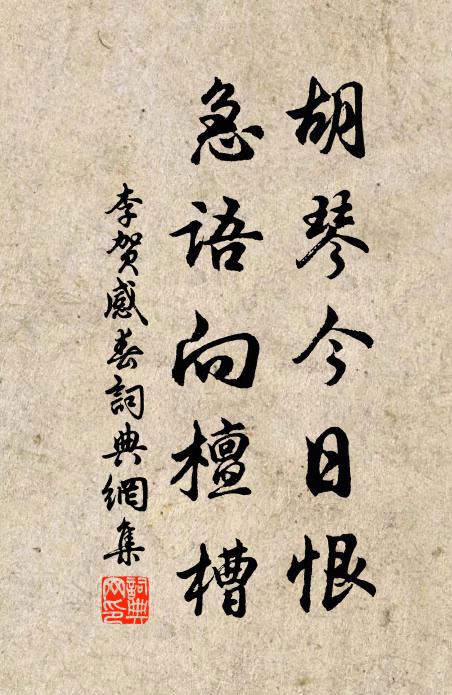 胡琴今日恨
急语向檀槽
李贺感春詞典網集
詞典网印